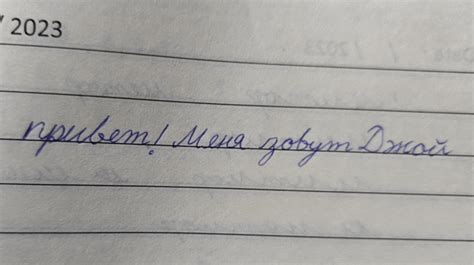 2023
привет! Меня зовут Джой